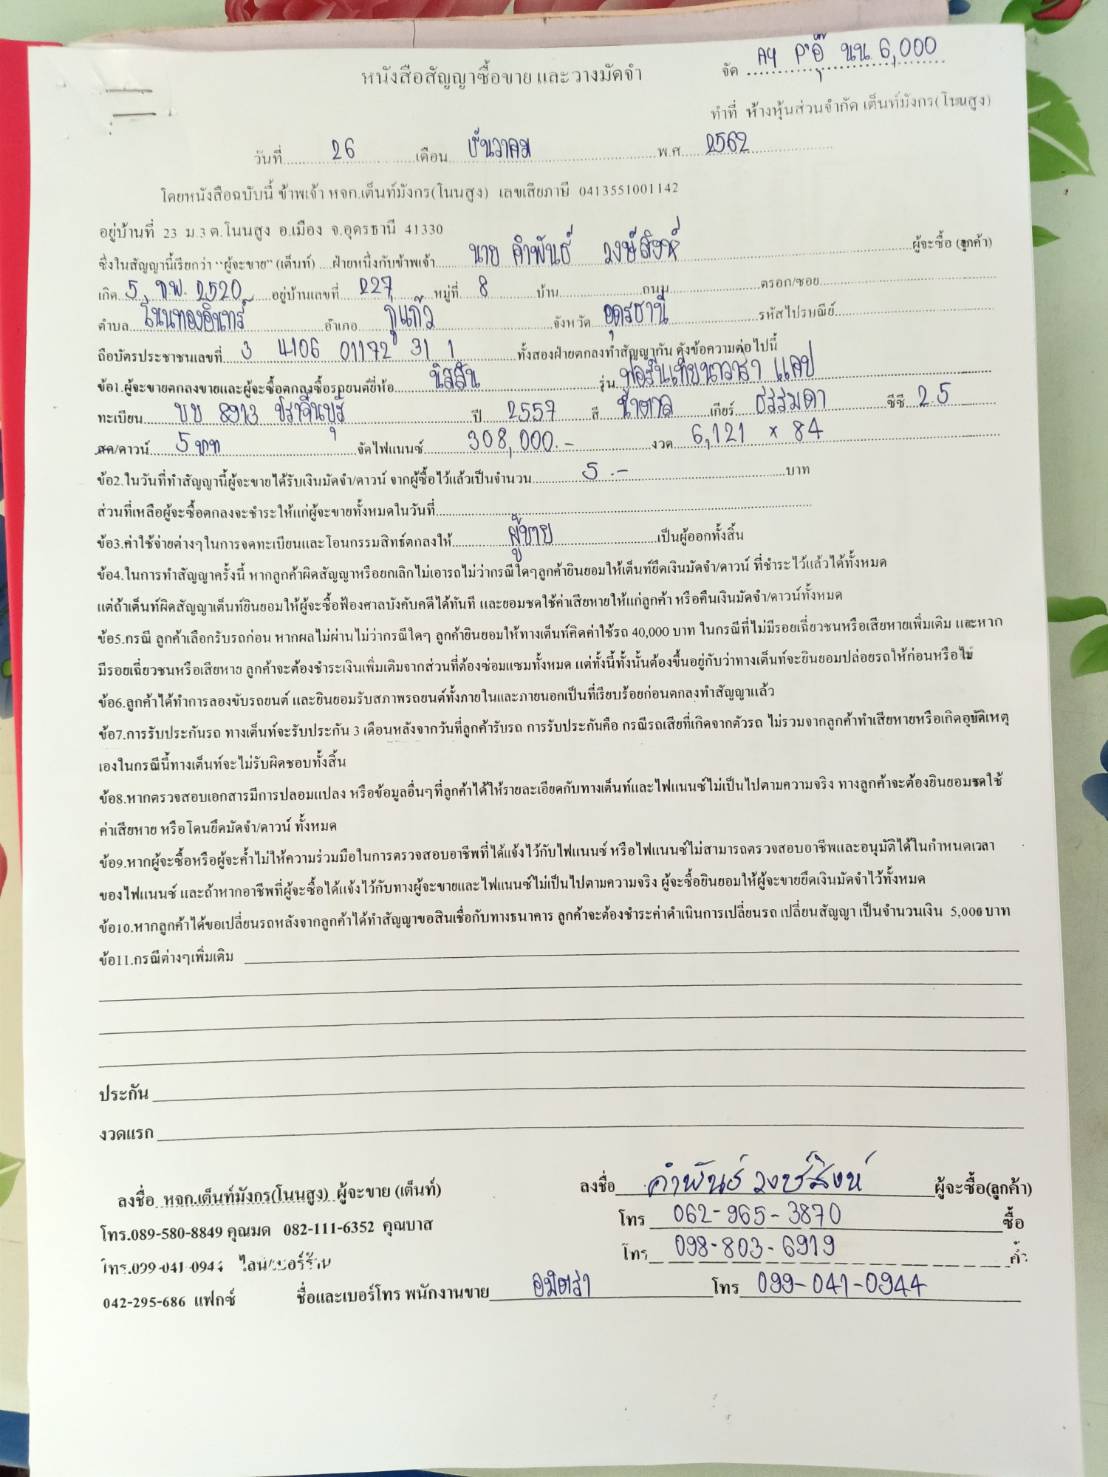 หนังสือสัญญาซื้อขาย และ วางมัดจำ
จัด AY P'อุ๊ นน 6,000
ทำที่ ห้างหุ้นส่วนจำกัด เต็นท์มังกร(โนนสูง)
วันที่ 26 เดือน ธันวาคม พ.ศ. 2562
โดยหนังสือฉบับนี้ ข้าพเจ้า หจก.เต็นท์มังกร(โนนสูง) เลขเสียภาษี 0413551001142
อยู่บ้านที่ 23 ม.3 ต.โนนสูง อ.เมือง จ.อุดรธานี 41330
ซึ่งในสัญญานี้เรียกว่า "ผู้จะขาย" (เต็นท์) ...ฝ่ายหนึ่งกับข้าพเจ้า นาย คำพันธ์ วงษ์สิงห์ ผู้จะซื้อ (ลูกค้า)
เกิด 5 กพ. 2520 อยู่บ้านเลขที่ 227 หมู่ที่ 8 บ้าน ถนน ตรอก/ซอย
ตำบล โนนทองอินทร์ อำเภอ กู่แก้ว จังหวัด อุดรธานี รหัสไปรษณีย์
ถือบัตรประชาชนเลขที่ 3 4106 01172 31 1 ทั้งสองฝ่ายตกลงทำสัญญากัน ดังข้อความต่อไปนี้
ข้อ1.ผู้จะขายตกลงขายและผู้จะซื้อตกลงซื้อรถยนต์ยี่ห้อ นิสสัน รุ่น ฟอร์นเทียนาวาร่า แคป
ทะเบียน บบ 8913 ปราจีนบุรี ปี 2557 สี น้ำตาล เกียร์ ธรรมดา ซีซี 2.5
สด/ดาวน์ 5 บาท จัดไฟแนนซ์ 308,000.- งวด 6,121 x 84
ข้อ2.ในวันที่ทำสัญญานี้ผู้จะขายได้รับเงินมัดจำ/ดาวน์ จากผู้ซื้อไว้แล้วเป็นจำนวน 5.- บาท
ส่วนที่เหลือผู้จะซื้อตกลงจะชำระให้แก่ผู้จะขายทั้งหมดในวันที่
ข้อ3.ค่าใช้จ่ายต่างๆในการจดทะเบียนและโอนกรรมสิทธ์ตกลงให้ ผู้ขาย เป็นผู้ออกทั้งสิ้น
ข้อ4.ในการทำสัญญาครั้งนี้ หากลูกค้าผิดสัญญาหรือยกเลิกไม่เอารถไม่ว่ากรณีใดๆลูกค้ายินยอมให้เต็นท์ยึดเงินมัดจำ/ดาวน์ ที่ชำระไว้แล้วได้ทั้งหมด
แต่ถ้าเต็นท์ผิดสัญญาเต็นท์ยินยอมให้ผู้จะซื้อฟ้องศาลบังคับคดีได้ทันที และยอมชดใช้ค่าเสียหายให้แก่ลูกค้า หรือคืนเงินมัดจำ/ดาวน์ทั้งหมด
ข้อ5.กรณี ลูกค้าเลือกรับรถก่อน หากผลไม่ผ่านไม่ว่ากรณีใดๆ ลูกค้ายินยอมให้ทางเต็นท์คิดค่าใช้รถ 40,000 บาท ในกรณีที่ไม่มีรอยเฉี่ยวชนหรือเสียหายเพิ่มเติม และหาก
มีรอยเฉี่ยวชนหรือเสียหาย ลูกค้าจะต้องชำระเงินเพิ่มเติมจากส่วนที่ต้องซ่อมแซมทั้งหมด แต่ทั้งนี้ทั้งนั้นต้องขึ้นอยู่กับว่าทางเต็นท์จะยินยอมปล่อยรถให้ก่อนหรือไม่
ข้อ6.ลูกค้าได้ทำการลองขับรถยนต์ และยินยอมรับสภาพรถยนต์ทั้งภายในและภายนอกเป็นที่เรียบร้อยก่อนตกลงทำสัญญาแล้ว
ข้อ7.การรับประกันรถ ทางเต็นท์จะรับประกัน 3 เดือนหลังจากวันที่ลูกค้ารับรถ การรับประกันคือ กรณีรถเสียที่เกิดจากตัวรถ ไม่รวมจากลูกค้าทำเสียหายหรือเกิดอุบัติเหตุ
เองในกรณีนี้ทางเต็นท์จะไม่รับผิดชอบทั้งสิ้น
ข้อ8.หากตรวจสอบเอกสารมีการปลอมแปลง หรือข้อมูลอื่นๆที่ลูกค้าได้ให้รายละเอียดกับทางเต็นท์และไฟแนนซ์ไม่เป็นไปตามความจริง ทางลูกค้าจะต้องยินยอมชดใช้
ค่าเสียหาย หรือโดนยึดมัดจำ/ดาวน์ ทั้งหมด
ข้อ9.หากผู้จะซื้อหรือผู้จะค้ำไม่ให้ความร่วมมือในการตรวจสอบอาชีพที่ได้แจ้งไว้กับไฟแนนซ์ หรือไฟแนนซ์ไม่สามารถตรวจสอบอาชีพและอนุมัติได้ในกำหนดเวลา
ของไฟแนนซ์ และถ้าหากอาชีพที่ผู้จะซื้อได้แจ้งไว้กับทางผู้จะขายและไฟแนนซ์ไม่เป็นไปตามความจริง ผู้จะซื้อยินยอมให้ผู้จะขายยึดเงินมัดจำไว้ทั้งหมด
ข้อ10.หากลูกค้าได้ขอเปลี่ยนรถหลังจากลูกค้าได้ทำสัญญาขอสินเชื่อกับทางธนาคาร ลูกค้าจะต้องชำระค่าดำเนินการเปลี่ยนรถ เปลี่ยนสัญญา เป็นจำนวนเงิน 5,000 บาท
ข้อ11.กรณีต่างๆเพิ่มเติม
ประกัน
งวดแรก
ลงชื่อ หจก.เต็นท์มังกร(โนนสูง) ผู้จะขาย (เต็นท์) ลงชื่อ คำพันธ์ วงษ์สิงห์ ผู้จะซื้อ(ลูกค้า)
โทร.089-580-8849 คุณมด 082-111-6352 คุณบาส โทร 062-965-3870 ซื้อ
โทร.099-041-0944 ไลน์เบอร์ร้าน โทร 098-803-6919 ค้ำ
042-295-686 แฟกซ์ ชื่อและเบอร์โทร พนักงานขาย อมิตรา โทร 099-041-0944